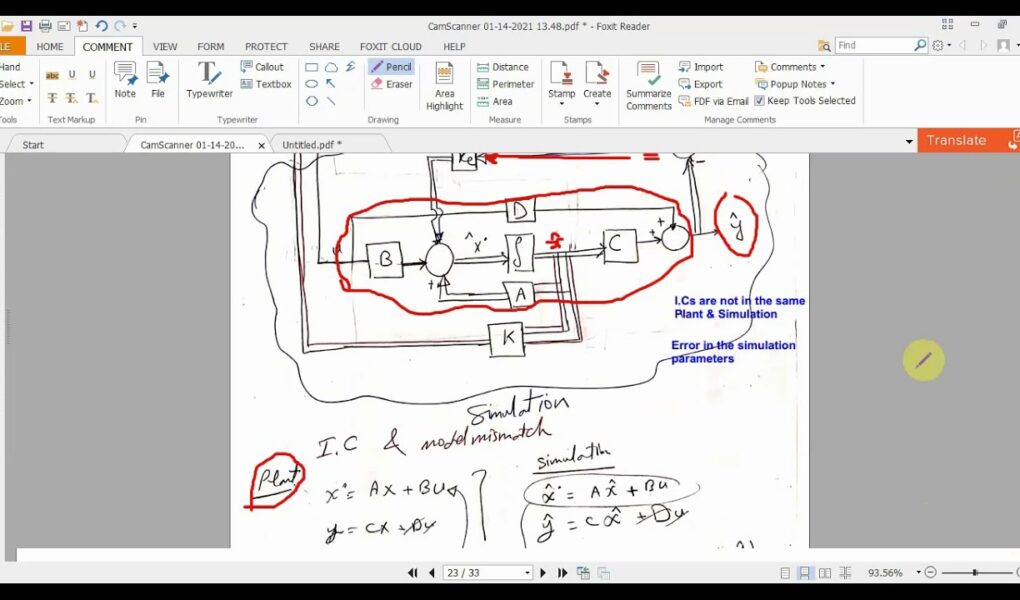 CamScanner 01-14-2021 13.48.pdf * - Foxit Reader
LE HOME COMMENT VIEW FORM PROTECT SHARE FOXIT CLOUD HELP
Find
Hand
Select
Zoom
Tools
abc U U
T T T
Text Markup
Note
File
Pin
Typewriter
Callout
Textbox
Typewriter
Pencil
Eraser
Drawing
Area
Highlight
Distance
Perimeter
Area
Measure
Stamp
Create
Stamps
Summarize
Comments
Import
Export
FDF via Email
Comments
Popup Notes
Keep Tools Selected
Manage Comments
Start
CamScanner 01-14-20... x
Untitled.pdf *
Translate
Ke
-
D
ŷ
u
B
^x˙
∫
C
+
+
+
A
K
I.Cs are not in the same
Plant & Simulation
Error in the simulation
parameters
Simulation
I.C & model mismatch
Plant
simulation
x˙ = Ax + Bu
x̂˙ = Ax̂ + Bu
y = Cx + Du
ŷ = Cx̂ + Du
23 / 33
93.56%